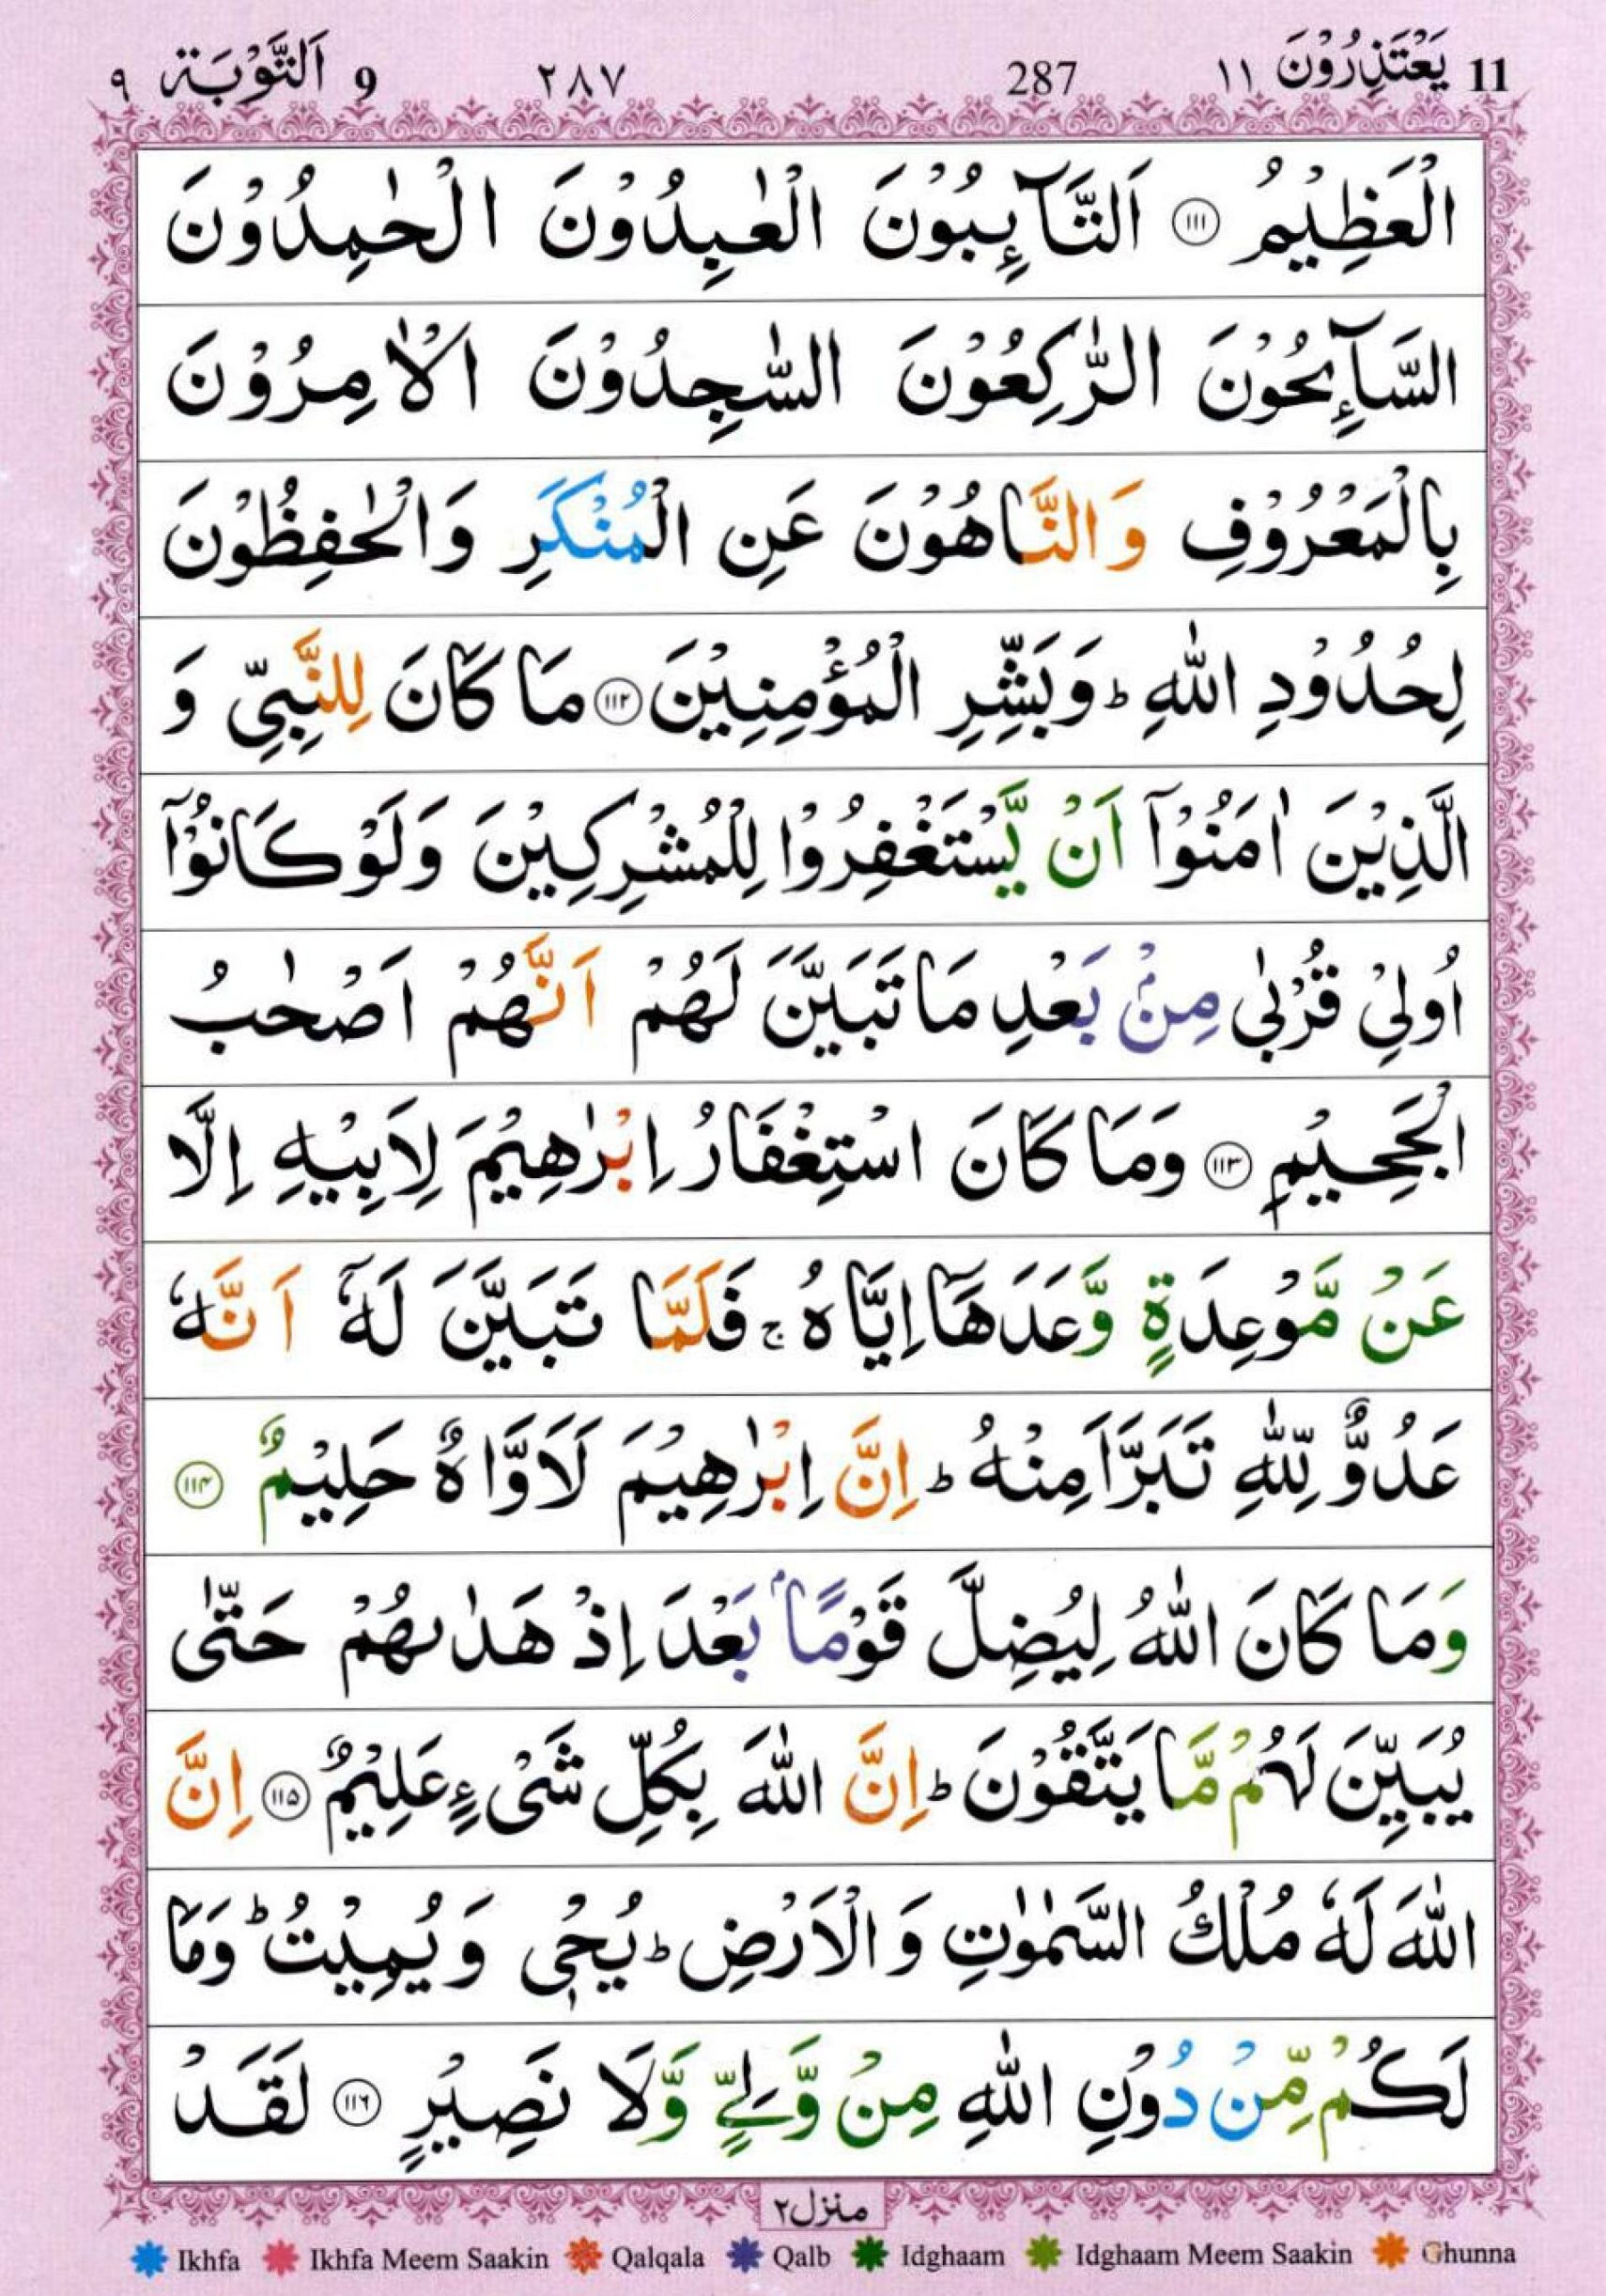 11 يَعْتَذِرُوْنَ ١١ 287 ٢٨٧ 9 اَلتَّوْبَة ٩
الْعَظِيْمُ ﴿١١١﴾ اَلتَّآئِبُوْنَ الْعٰبِدُوْنَ الْحٰمِدُوْنَ
السَّآئِحُوْنَ الرّٰكِعُوْنَ السّٰجِدُوْنَ الْاٰمِرُوْنَ
بِالْمَعْرُوْفِ وَالنَّاهُوْنَ عَنِ الْمُنْكَرِ وَالْحٰفِظُوْنَ
لِحُدُوْدِ اللّٰهِ ؕ وَبَشِّرِ الْمُؤْمِنِيْنَ ﴿١١٢﴾ مَا كَانَ لِلنَّبِيِّ وَ
الَّذِيْنَ اٰمَنُوْۤا اَنْ يَّسْتَغْفِرُوْا لِلْمُشْرِكِيْنَ وَلَوْ كَانُوْۤا
اُولِيْ قُرْبٰى مِنْۢ بَعْدِ مَا تَبَيَّنَ لَهُمْ اَنَّهُمْ اَصْحٰبُ
الْجَحِيْمِ ﴿١١٣﴾ وَمَا كَانَ اسْتِغْفَارُ اِبْرٰهِيْمَ لِاَبِيْهِ اِلَّا
عَنْ مَّوْعِدَةٍ وَّعَدَهَاۤ اِيَّاهُ ۚ فَلَمَّا تَبَيَّنَ لَهٗۤ اَنَّهٗ
عَدُوٌّ لِّلّٰهِ تَبَرَّاَ مِنْهُ ؕ اِنَّ اِبْرٰهِيْمَ لَاَوَّاهٌ حَلِيْمٌ ﴿١١٤﴾
وَمَا كَانَ اللّٰهُ لِيُضِلَّ قَوْمًۢا بَعْدَ اِذْ هَدٰىهُمْ حَتّٰى
يُبَيِّنَ لَهُمْ مَّا يَتَّقُوْنَ ؕ اِنَّ اللّٰهَ بِكُلِّ شَيْءٍ عَلِيْمٌ ﴿١١٥﴾ اِنَّ
اللّٰهَ لَهٗ مُلْكُ السَّمٰوٰتِ وَالْاَرْضِ ؕ يُحْيٖ وَيُمِيْتُ ؕ وَمَا
لَكُمْ مِّنْ دُوْنِ اللّٰهِ مِنْ وَّلِيٍّ وَّلَا نَصِيْرٍ ﴿١١٦﴾ لَقَدْ
منزل٢
Ikhfa Ikhfa Meem Saakin Qalqala Qalb Idghaam Idghaam Meem Saakin Ghunna